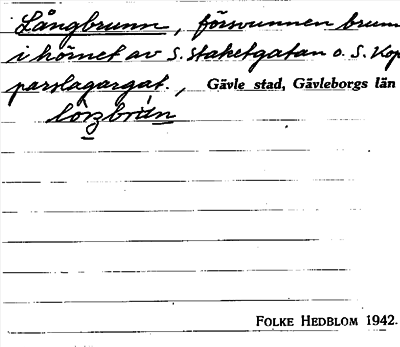 Långbrunn, försvunnen brunn
i hörnet av S. Staketgatan o. S. Kop
parslagargat., Gävle stad, Gävleborgs län
FOLKE HEDBLOM 1942.